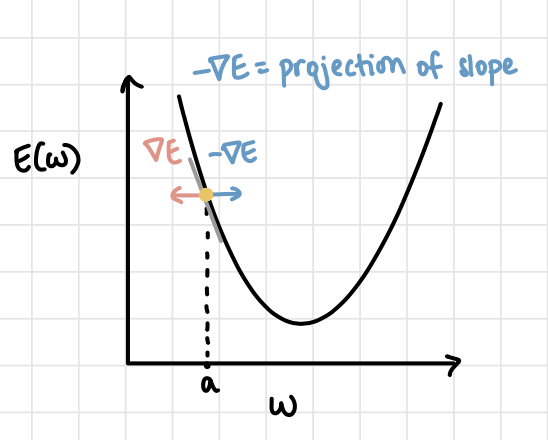 -∇E = projection of slope
E(w)
∇E
-∇E
a
w